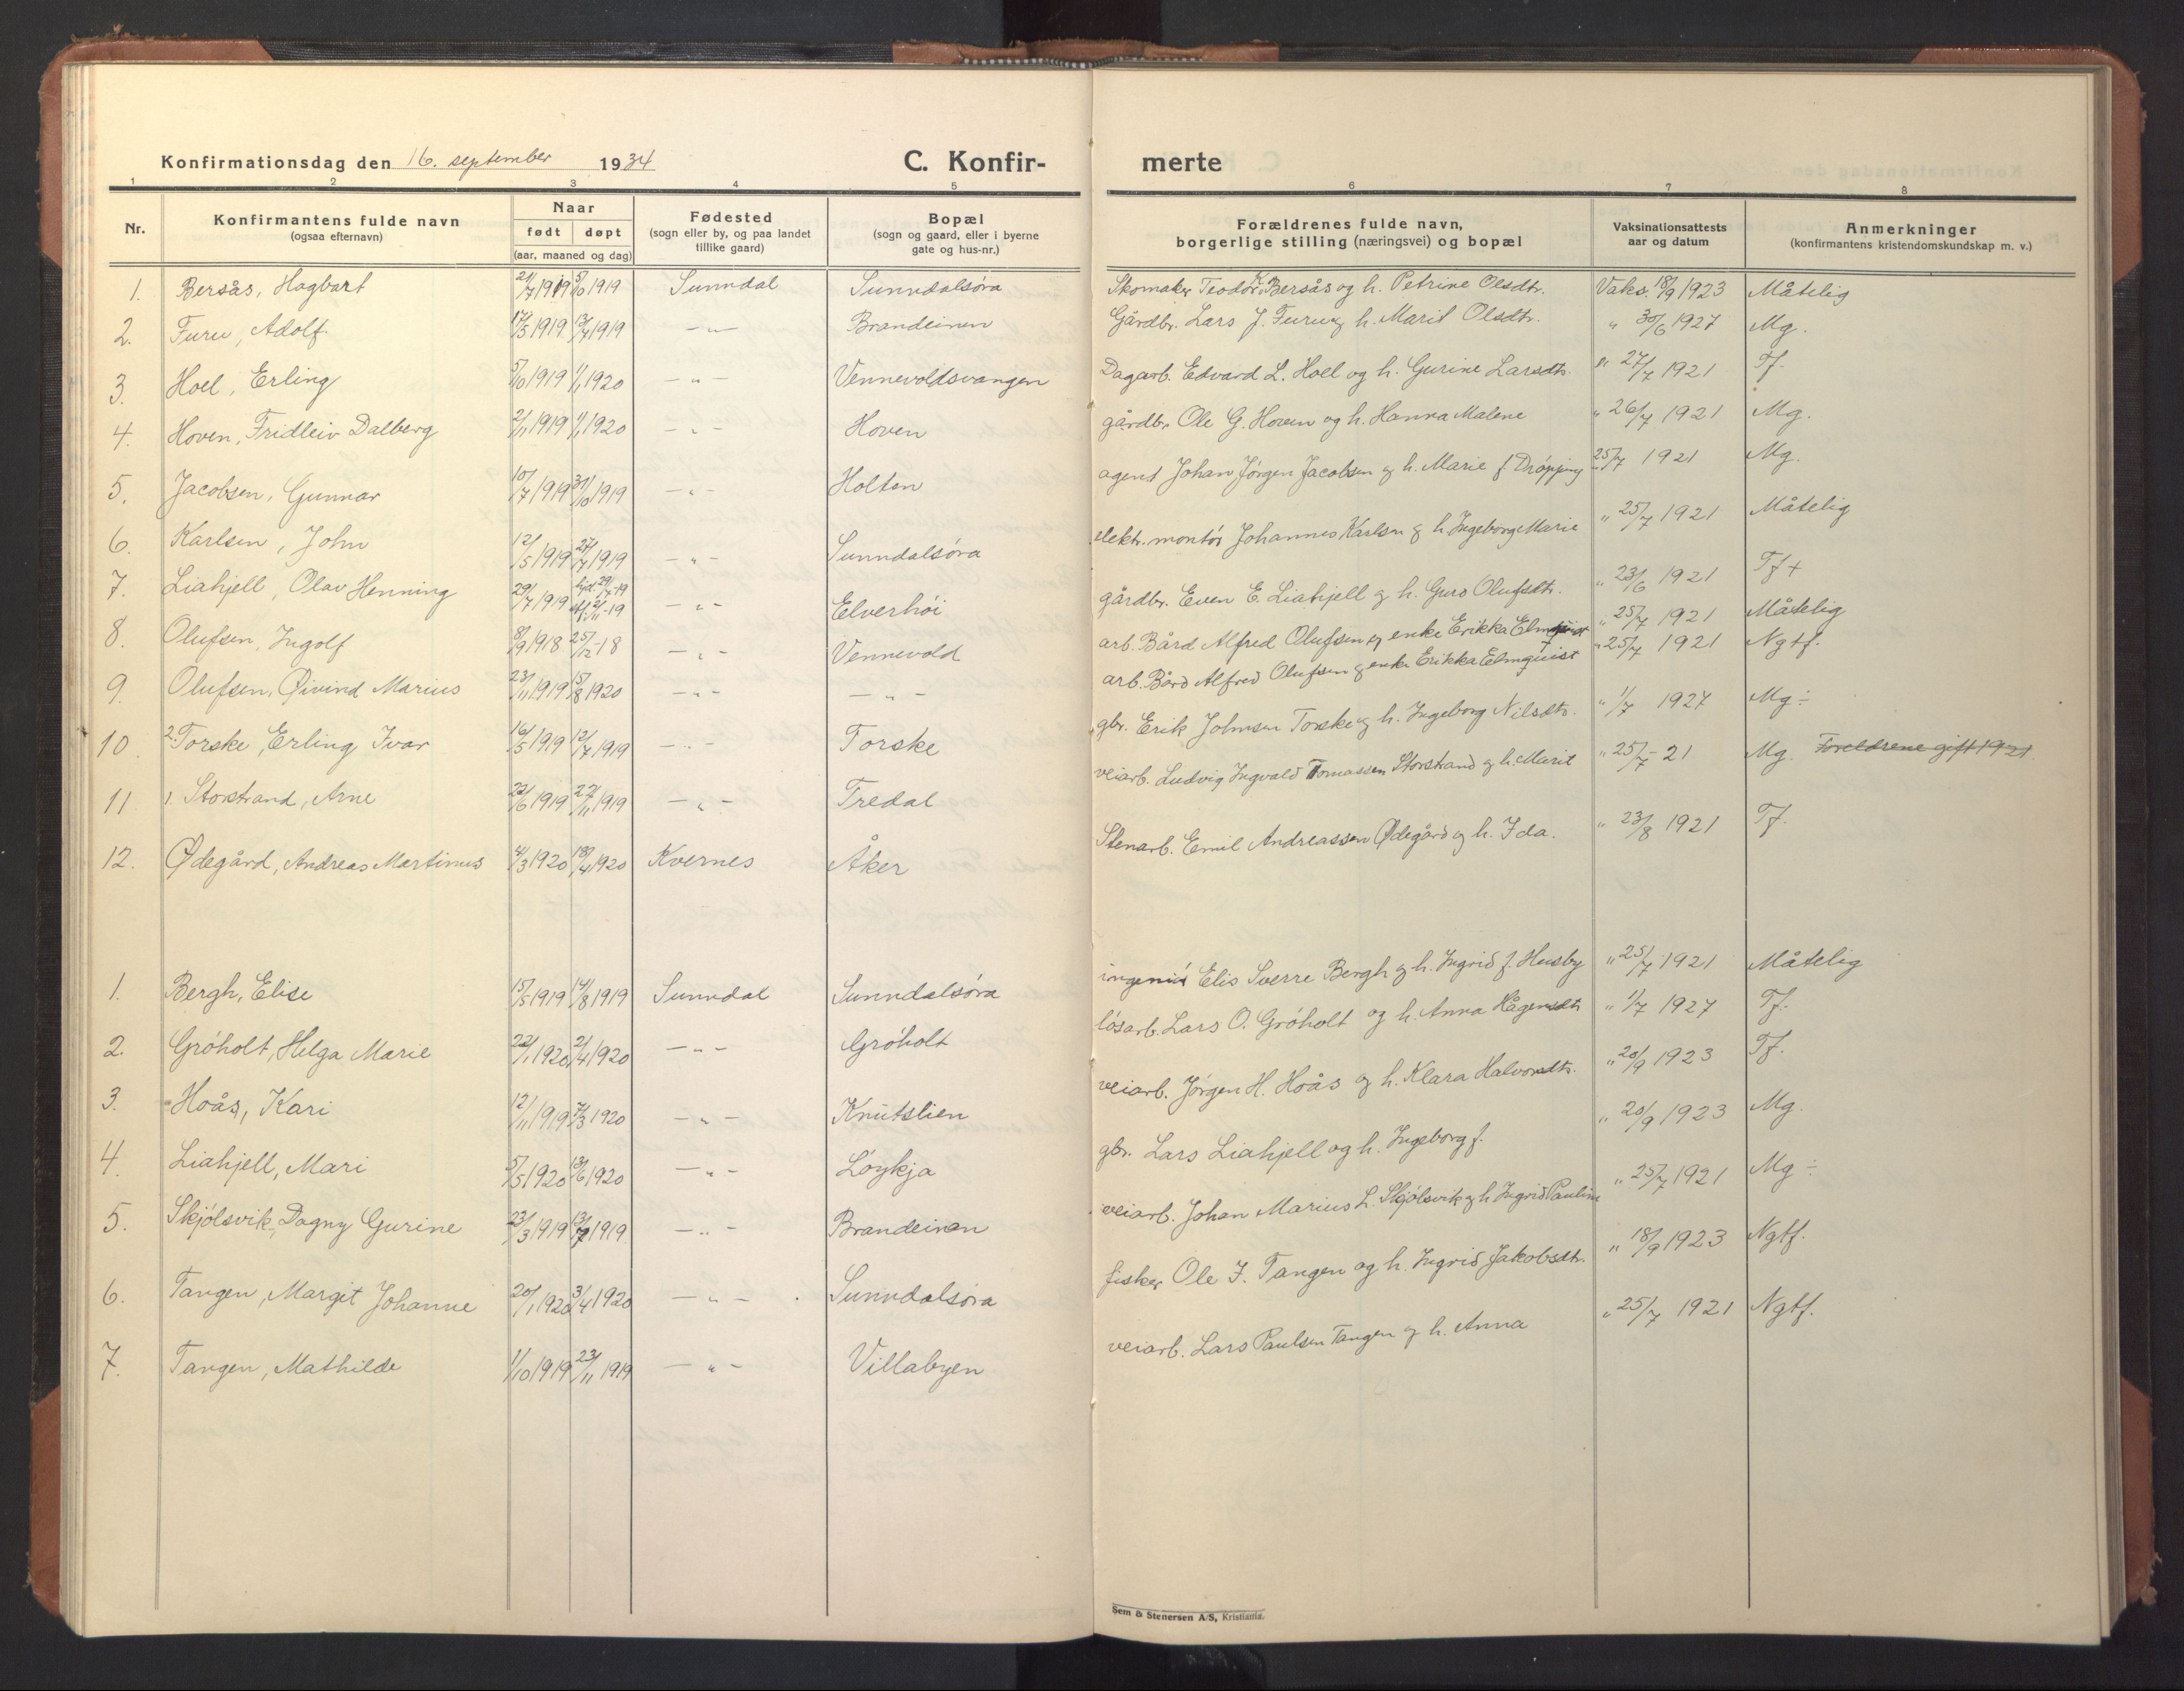 Konfirmationsdag den 16. september 1934 C. Konfir-
1 2 3 4 5
Nr. Konfirmantens fulde navn (ogsaa efternavn) Naar født døpt (aar, maaned og dag) Fødested (sogn eller by, og paa landet tillike gaard) Bopæl (sogn og gaard, eller i byerne gate og hus-nr.)
1. Bersås, Hagbart 21/7 1919 5/10 1919 Sunndal Sunndalsøra
2. Furu, Adolf 17/5 1919 13/7 1919 —"— Brandeiren
3. Hoel, Erling 5/10 1919 1/1 1920 —"— Vennevoldsvangen
4. Hoven, Fridleiv Dalberg 2/11 1919 1/1 1920 —"— Hoven
5. Jacobsen, Gunnar 10/7 1919 31/10 1919 —"— Holten
6. Karlsen, John 12/5 1919 27/7 1919 —"— Sunndalsøra
7. Liahjell, Olav Henning 29/7 1919 hjd. 29/7-19 stf. 2/11-19 —"— Elverhøi
8. Olufsen, Ingolf 8/9 1918 25/12-18 —"— Vennevold
9. Olufsen, Øivind Marius 23/11 1919 15/8 1920 —"— —"—
10. 2. Torske, Erling Ivar 16/5 1919 12/7 1919 —"— Torske
11. 1. Storstrand, Arne 22/6 1919 22/11 1919 —"— Tredal
12. Ødegård, Andreas Martinus 4/3 1920 18/4 1920 Kvernes Åker
1. Bergh, Elise 15/5 1919 14/8 1919 Sunndal Sunndalsøra
2. Grøholt, Helga Marie 22/1 1920 2/4 1920 —"— Grøholt
3. Hoås, Kari 12/11 1919 7/3 1920 —"— Knutslien
4. Liahjell, Mari 5/5 1920 13/6 1920 —"— Løykja
5. Skjølsvik, Dagny Gurine 23/3 1919 13/7 1919 —"— Brandeiren
6. Tangen, Margit Johanne 20/1 1920 3/4 1920 —"— Sunndalsøra
7. Tangen, Mathilde 1/10 1919 23/11 1919 —"— Villabyen
merte
6 7 8
Forældrenes fulde navn, borgerlige stilling (næringsvei) og bopæl Vaksinationsattests aar og datum Anmerkninger (konfirmantens kristendomskundskap m. v.)
Skomaker Teodor K. Bersås og h. Petrine Olsdtr. Vaks. 18/9 1923 Måtelig
Gårdbr. Lars J. Furu og h. Marit Olsdtr. " 30/6 1927 Mg.
Dagarb. Edvard L. Hoel og h. Gurine Larsdtr. " 27/7 1921 Tf.
gårdbr. Ole G. Hoven og h. Hanna Malene " 26/7 1921 Mg.
agent Johan Jørgen Jacobsen og h. Marie f. Drøpping 25/7 1921 Mg.
elektr. montør Johannes Karlsen og h. Ingeborg Marie " 25/7 1921 Måtelig
gårdbr. Even E. Liahjell og h. Guro Olufsdt. " 23/6 1921 Tf +
arb. Bård Alfred Olufsen og enke Erikka Elmquist " 25/7 1921 Måtelig
arb. Bård Alfred Olufsen og enke Erikka Elmquist " 25/7 1921 Ngtf.
gbr. Erik Johnsen Torske og h. Ingeborg Nilsdtr. " 1/7 1927 Mg ÷
veiarb. Ludvig Ingvald Tomassen Storstrand og h. Marit " 25/7-21 Mg. Foreldrene gift 1921.
Stenarb. Emil Andreassen Ødegård og h. Ida. " 23/8 1921 Tf.
ingeniør Elis Sverre Bergh og h. Ingrid f. Husby " 25/7 1921 Måtelig
løsarb. Lars O. Grøholt og h. Anna Hågensdtr " 1/7 1927 Tf.
veiarb. Jørgen H. Hoås og h. Klara Halvorsdtr. " 20/9 1923 Tf.
gbr. Lars Liahjell og h. Ingeborg f. " 20/9 1923 Mg.
veiarb. Johan Marius L. Skjølsvik og h. Ingrid Pauline " 25/7 1921 Mg ÷
fisker Ole J. Tangen og h. Ingrid Jakobsdtr. " 18/9 1923 Ngtf.
veiarb. Lars Paulsen Tangen og h. Anna " 25/7 1921 Ngtf.
Sem & Stenersen A/S, Kristiania.